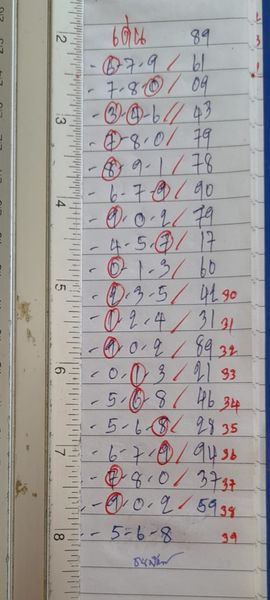 เด่น 89
- 6-7-9 / 61
- 7-8-0 / 09
- 3-4-6 / 43
- 7-8-0 / 79
- 8-9-1 / 78
- 6-7-9 / 90
- 9-0-2 / 79
- 4-5-7 / 17
- 0-1-3 / 60
- 2-3-5 / 42 30
- 1-2-4 / 31 31
- 9-0-2 / 89 32
- 0-1-3 / 21 33
- 5-6-8 / 46 34
- 5-6-8 / 28 35
- 6-7-9 / 94 36
- 7-8-0 / 37 37
- 9-0-2 / 59 38
- 5-6-8 39
2
3
4
5
6
7
8